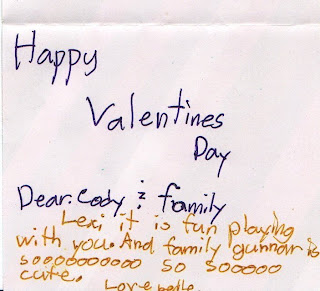 Happy
Valentines
Day
Dear. Cody & family
Lexi it is fun playing
with you. And family gunnar is
sooooooooooo so soooooo
cute.
Love belle